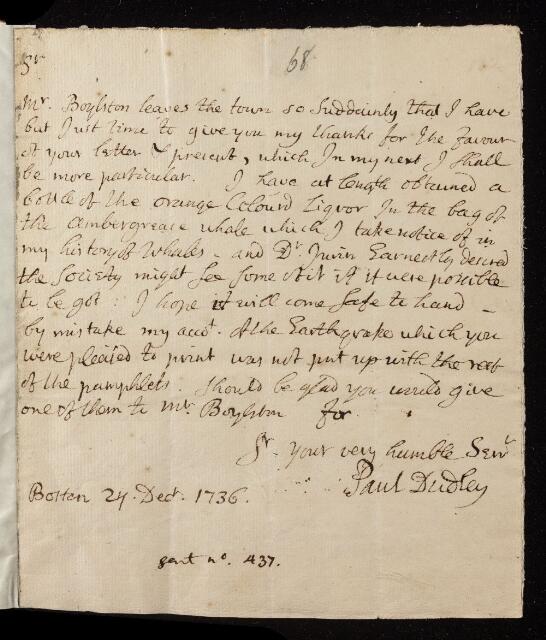 68
Sr
Mr. Boylston leaves the town so Suddainly that I have
but Just time to give you my thanks for the favour
of your letter & present, which In my next I shall
be more particular. I have at length obtained a
bottle of the orange Colourd Liquor In the bag of
the Ambergrease whale which I take notice of in
my history of Whales - and Dr. Jurin Earnestly desired
the Society might see some of it if it were possible
to be got : I hope it will come safe to hand _
by mistake my acct. of the Earthquake which you
were pleased to print was not put up with the rest
of the pamphlets. Should be glad you would give
one of them to Mr. Boylston for
Sr. your very humble Servt
Paul Dudley
Boston 24 Decr. 1736.
gent no. 437.